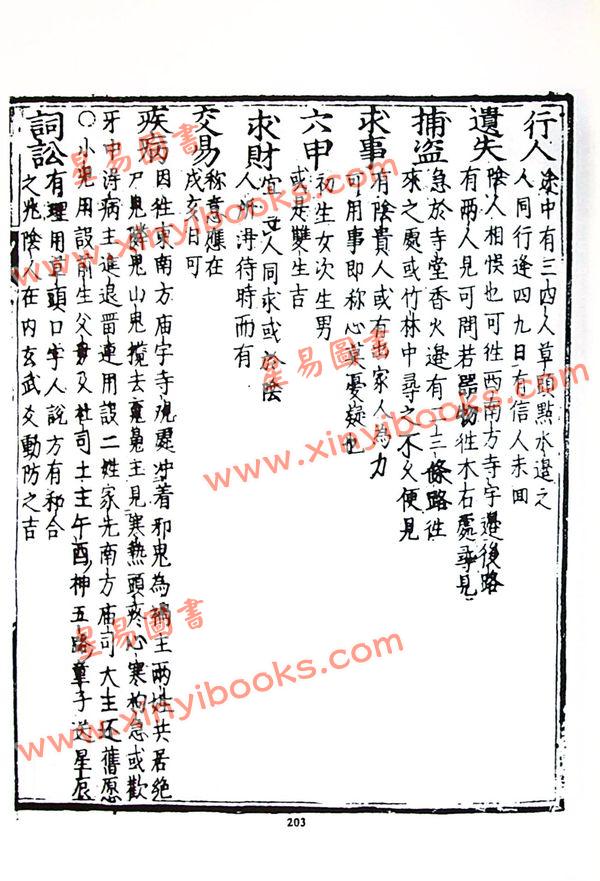 行人 途中有三四人草頭點水邊之
人同行逢四九日有信人未回
遺失 陰人相悮也可往西南方寺宇邊後路
有兩人見可問若器物往木石處尋見
捕盗 急於寺堂香火邊有十三條路往
來之處或竹林中尋之不久便見
求事 有陰貴人或有出家人為力
可用事即称心莫憂疑也
六甲 初生女次生男
或是雙生吉
求財 宜文人同求或於陰
人所得待時而有
交易 称意嬚在
戌亥日可
疾病 因往東南方庙宇寺观 冲着邪鬼為禍主兩姓共居絶
尸鬼 鬼山鬼攪去 主見寒熱頭疼心寒 急或歡
牙中得病主進退畱連用設二姓家先南方庙司大主还舊愿
○小児用設前生父 土主午酉神五路童子送星辰
詞訟 有理用草頭口字人說方有和合
之兆陰 在内玄武爻動防之吉
203
星易圖書
www.xinyibooks.com
星易圖書
www.xinyibooks.com
星易圖書
www.xinyibooks.com